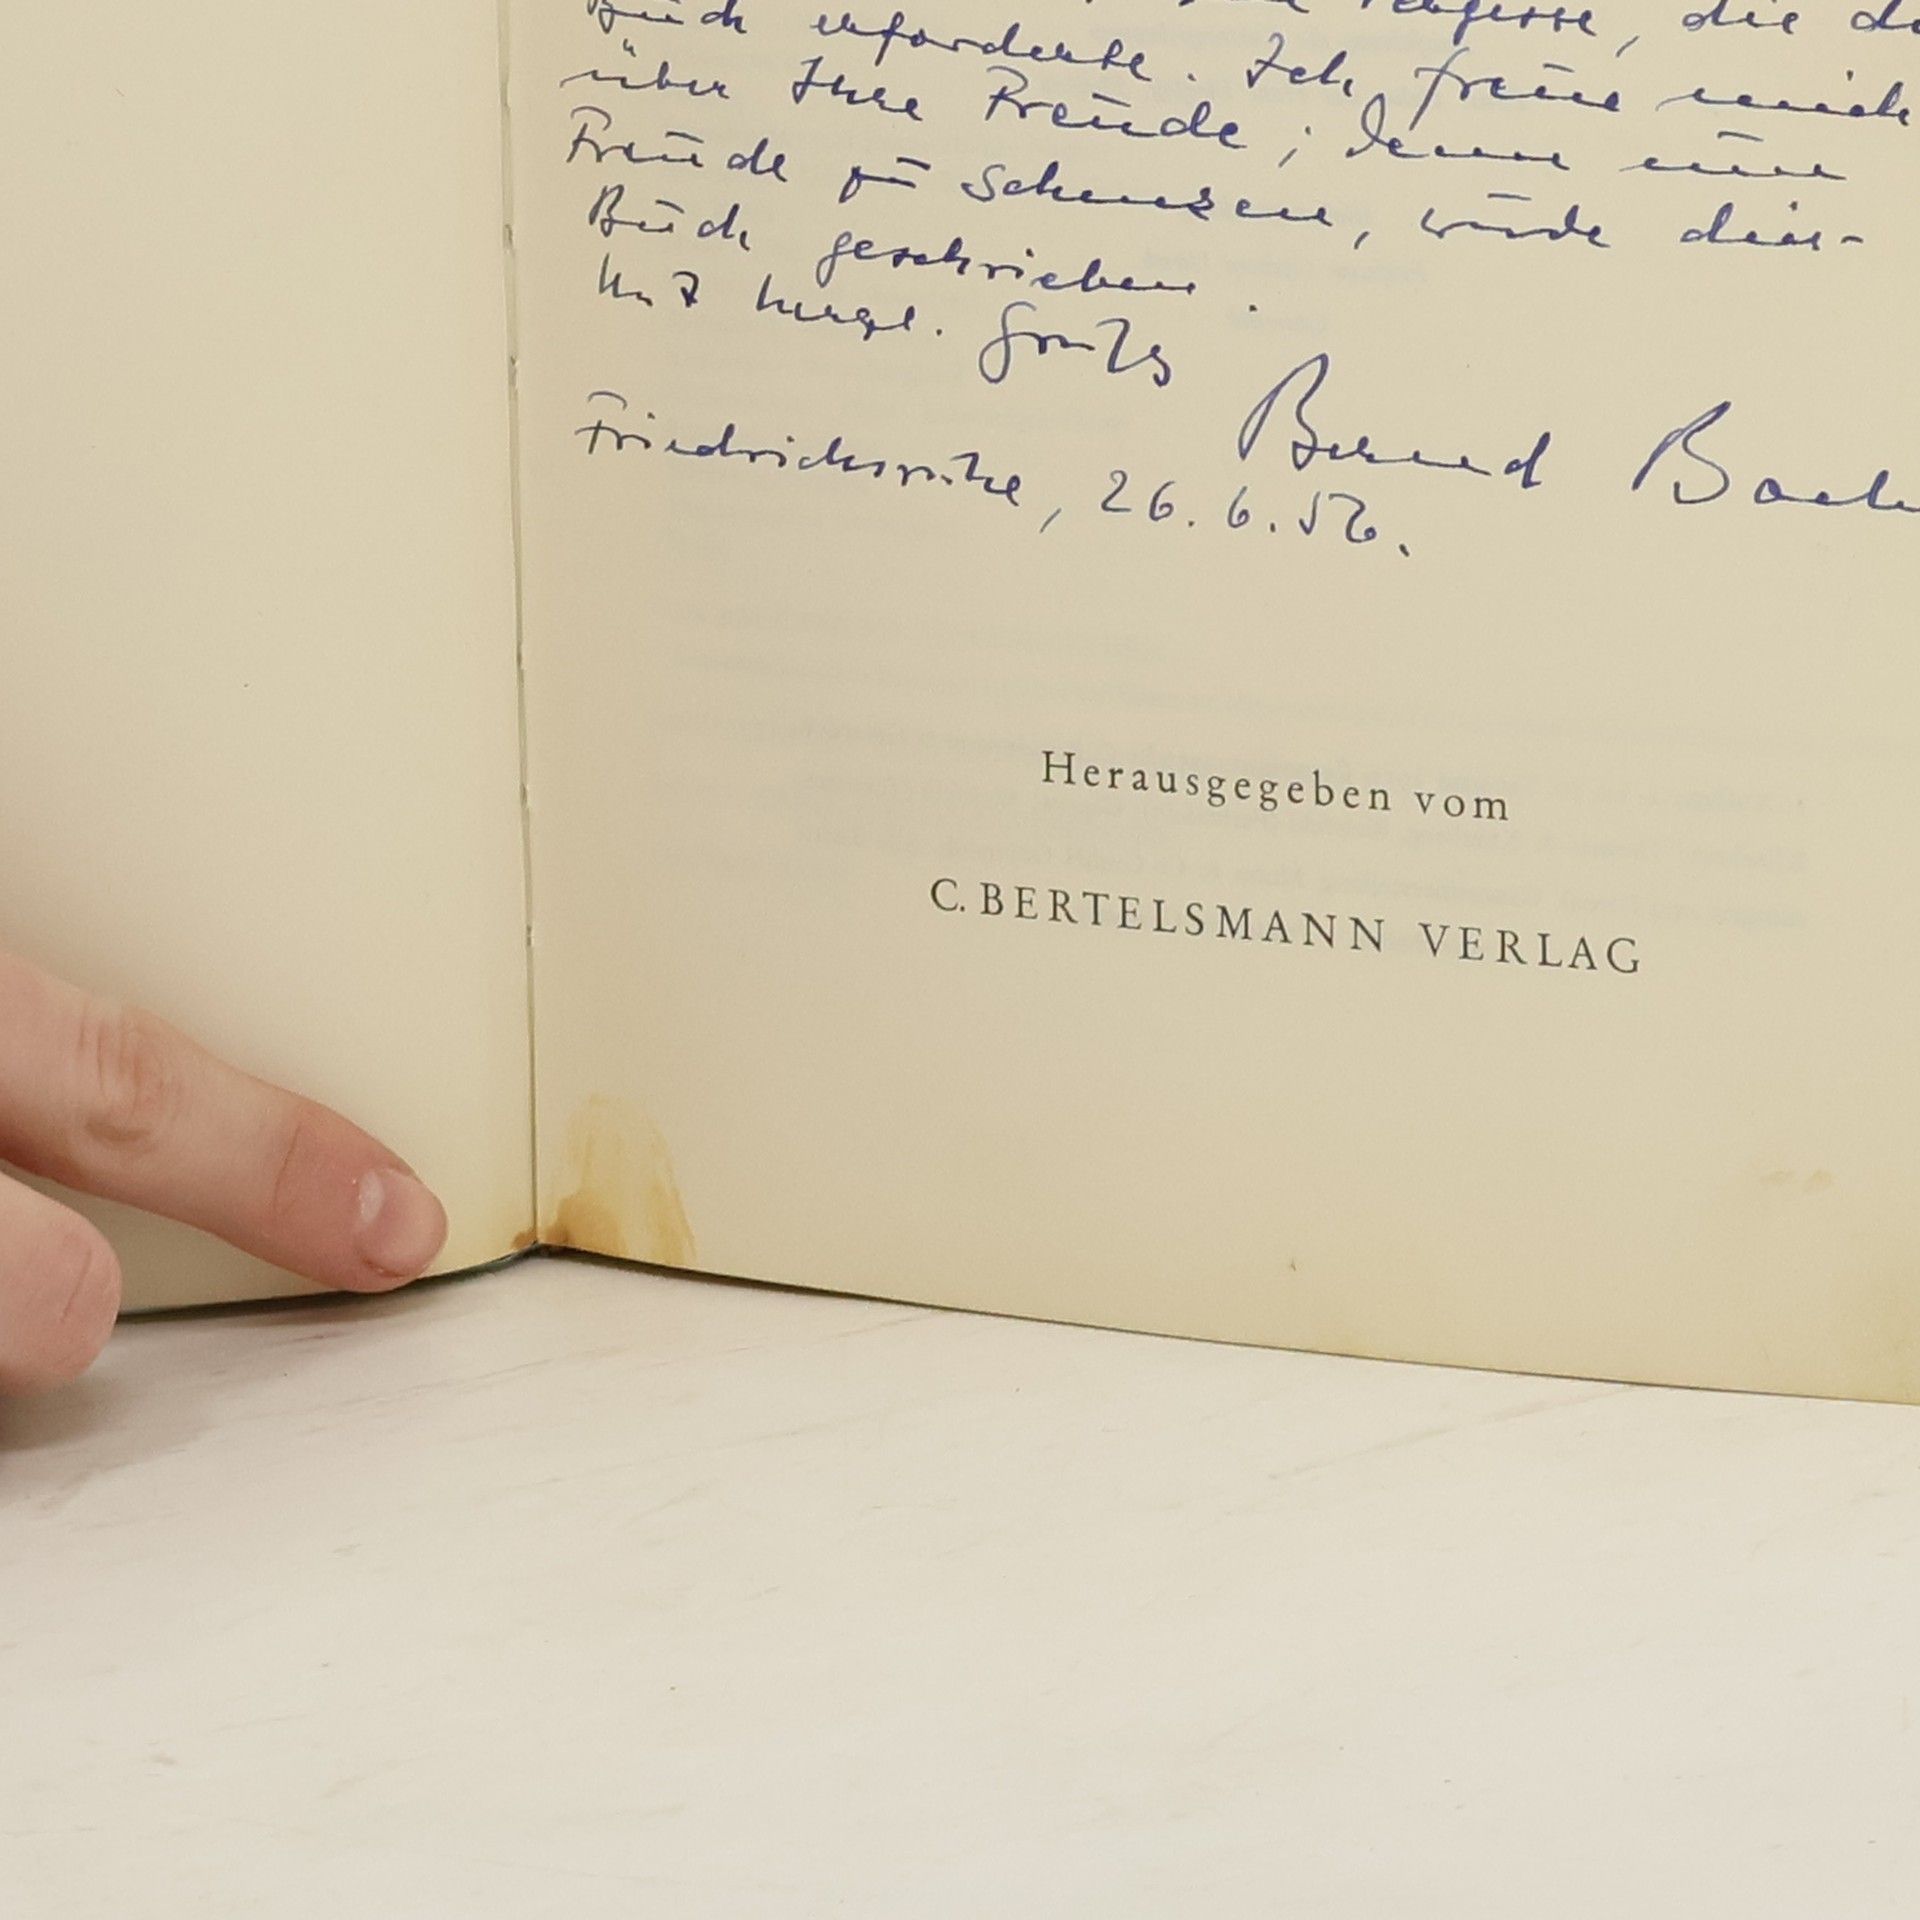 Buch erforderte. Ich freue mich
über Ihre Freude; denn um
Freude zu schenken, wurde dies-
Buch geschrieben.
Mit herzl. Gruß
Bernd
Friedrichsruhe, 26.6.56.
Herausgegeben vom
C. BERTELSMANN VERLAG